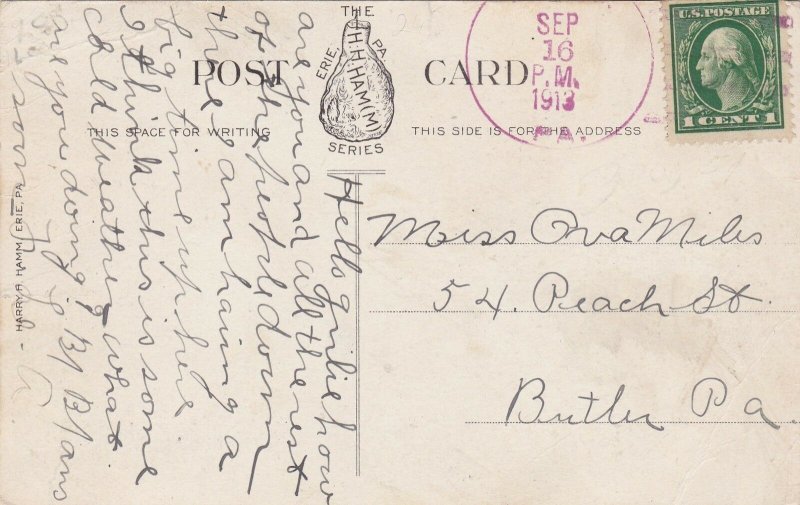 THE
H.H.HAM(M)
ERIE, PA
SERIES
POST CARD
THIS SPACE FOR WRITING
THIS SIDE IS FOR THE ADDRESS
SEP
16
P.M.
1913
PA.
U.S. POSTAGE
1 CENT 1
Miss Ova Miles
54. Peach St.
Butler Pa.
Hello how
are you and all the rest
of the people down
there I am having a
big time up here.
I think this is some
cold weather what
are you doing? ans
soon
HARRY H. HAMM, ERIE, PA.